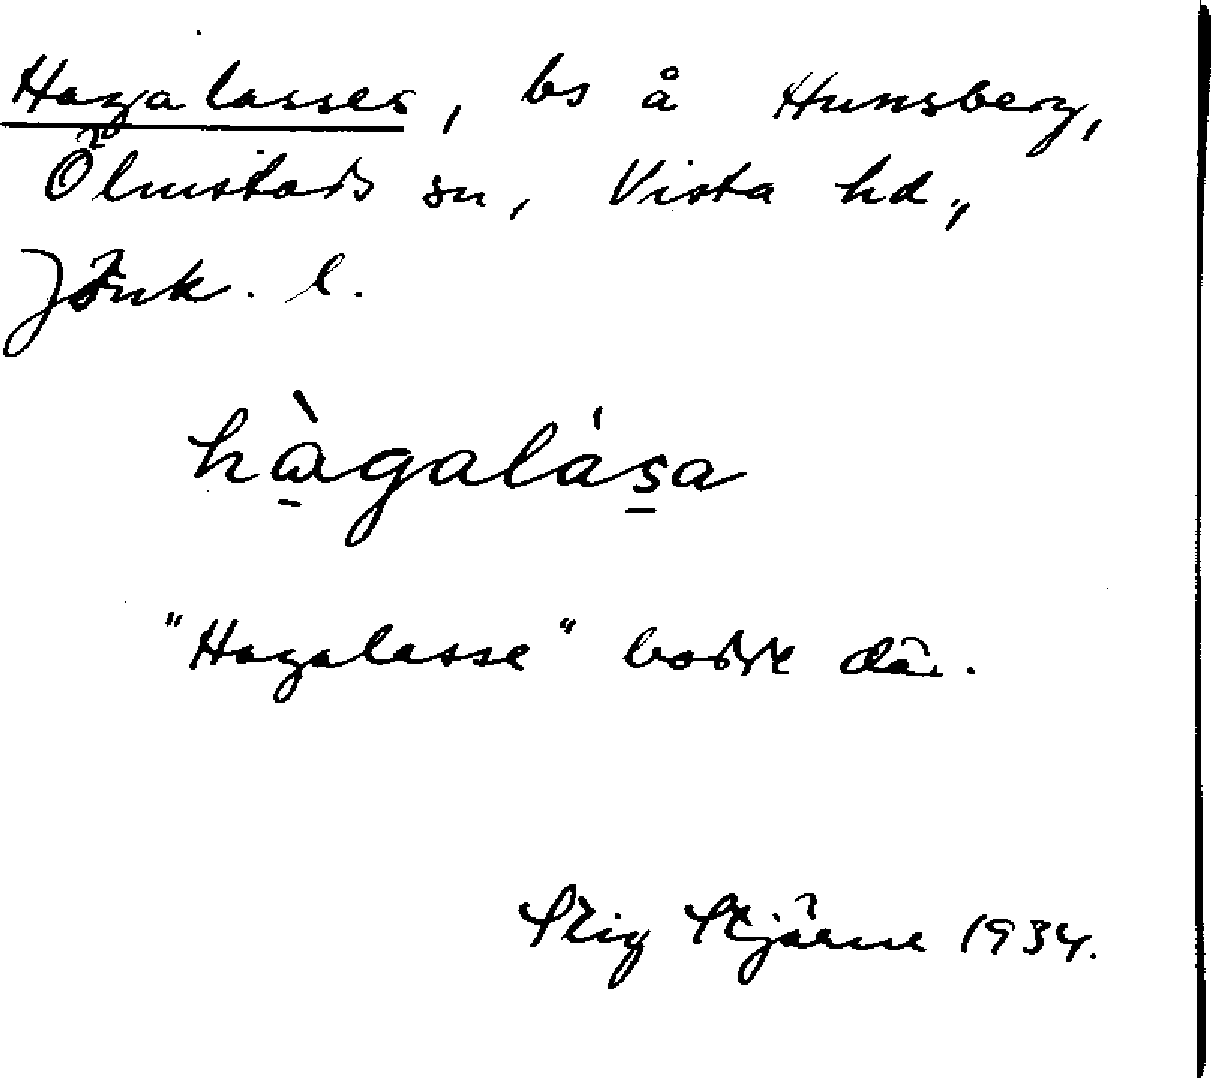 Hagalasses, bs å Hunsberg,
Ölmstads sn, Vista hd.,
Jönk. l.
hàgalása
"Hagalasse" bodde där.
Stig Stjärne 1934.